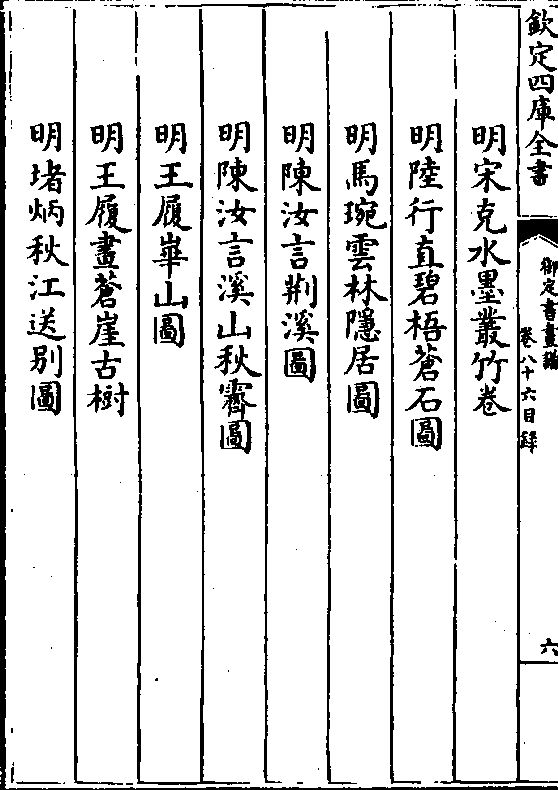 欽定四庫全書
御定書畫譜
卷八十六目錄
六
明宋克水墨叢竹卷
明陸行直碧梧蒼石圖
明馬琬雲林隱居圖
明陳汝言荆溪圖
明陳汝言溪山秋霽圖
明王履崋山圖
明王履畫蒼崖古樹
明堵炳秋江送别圖